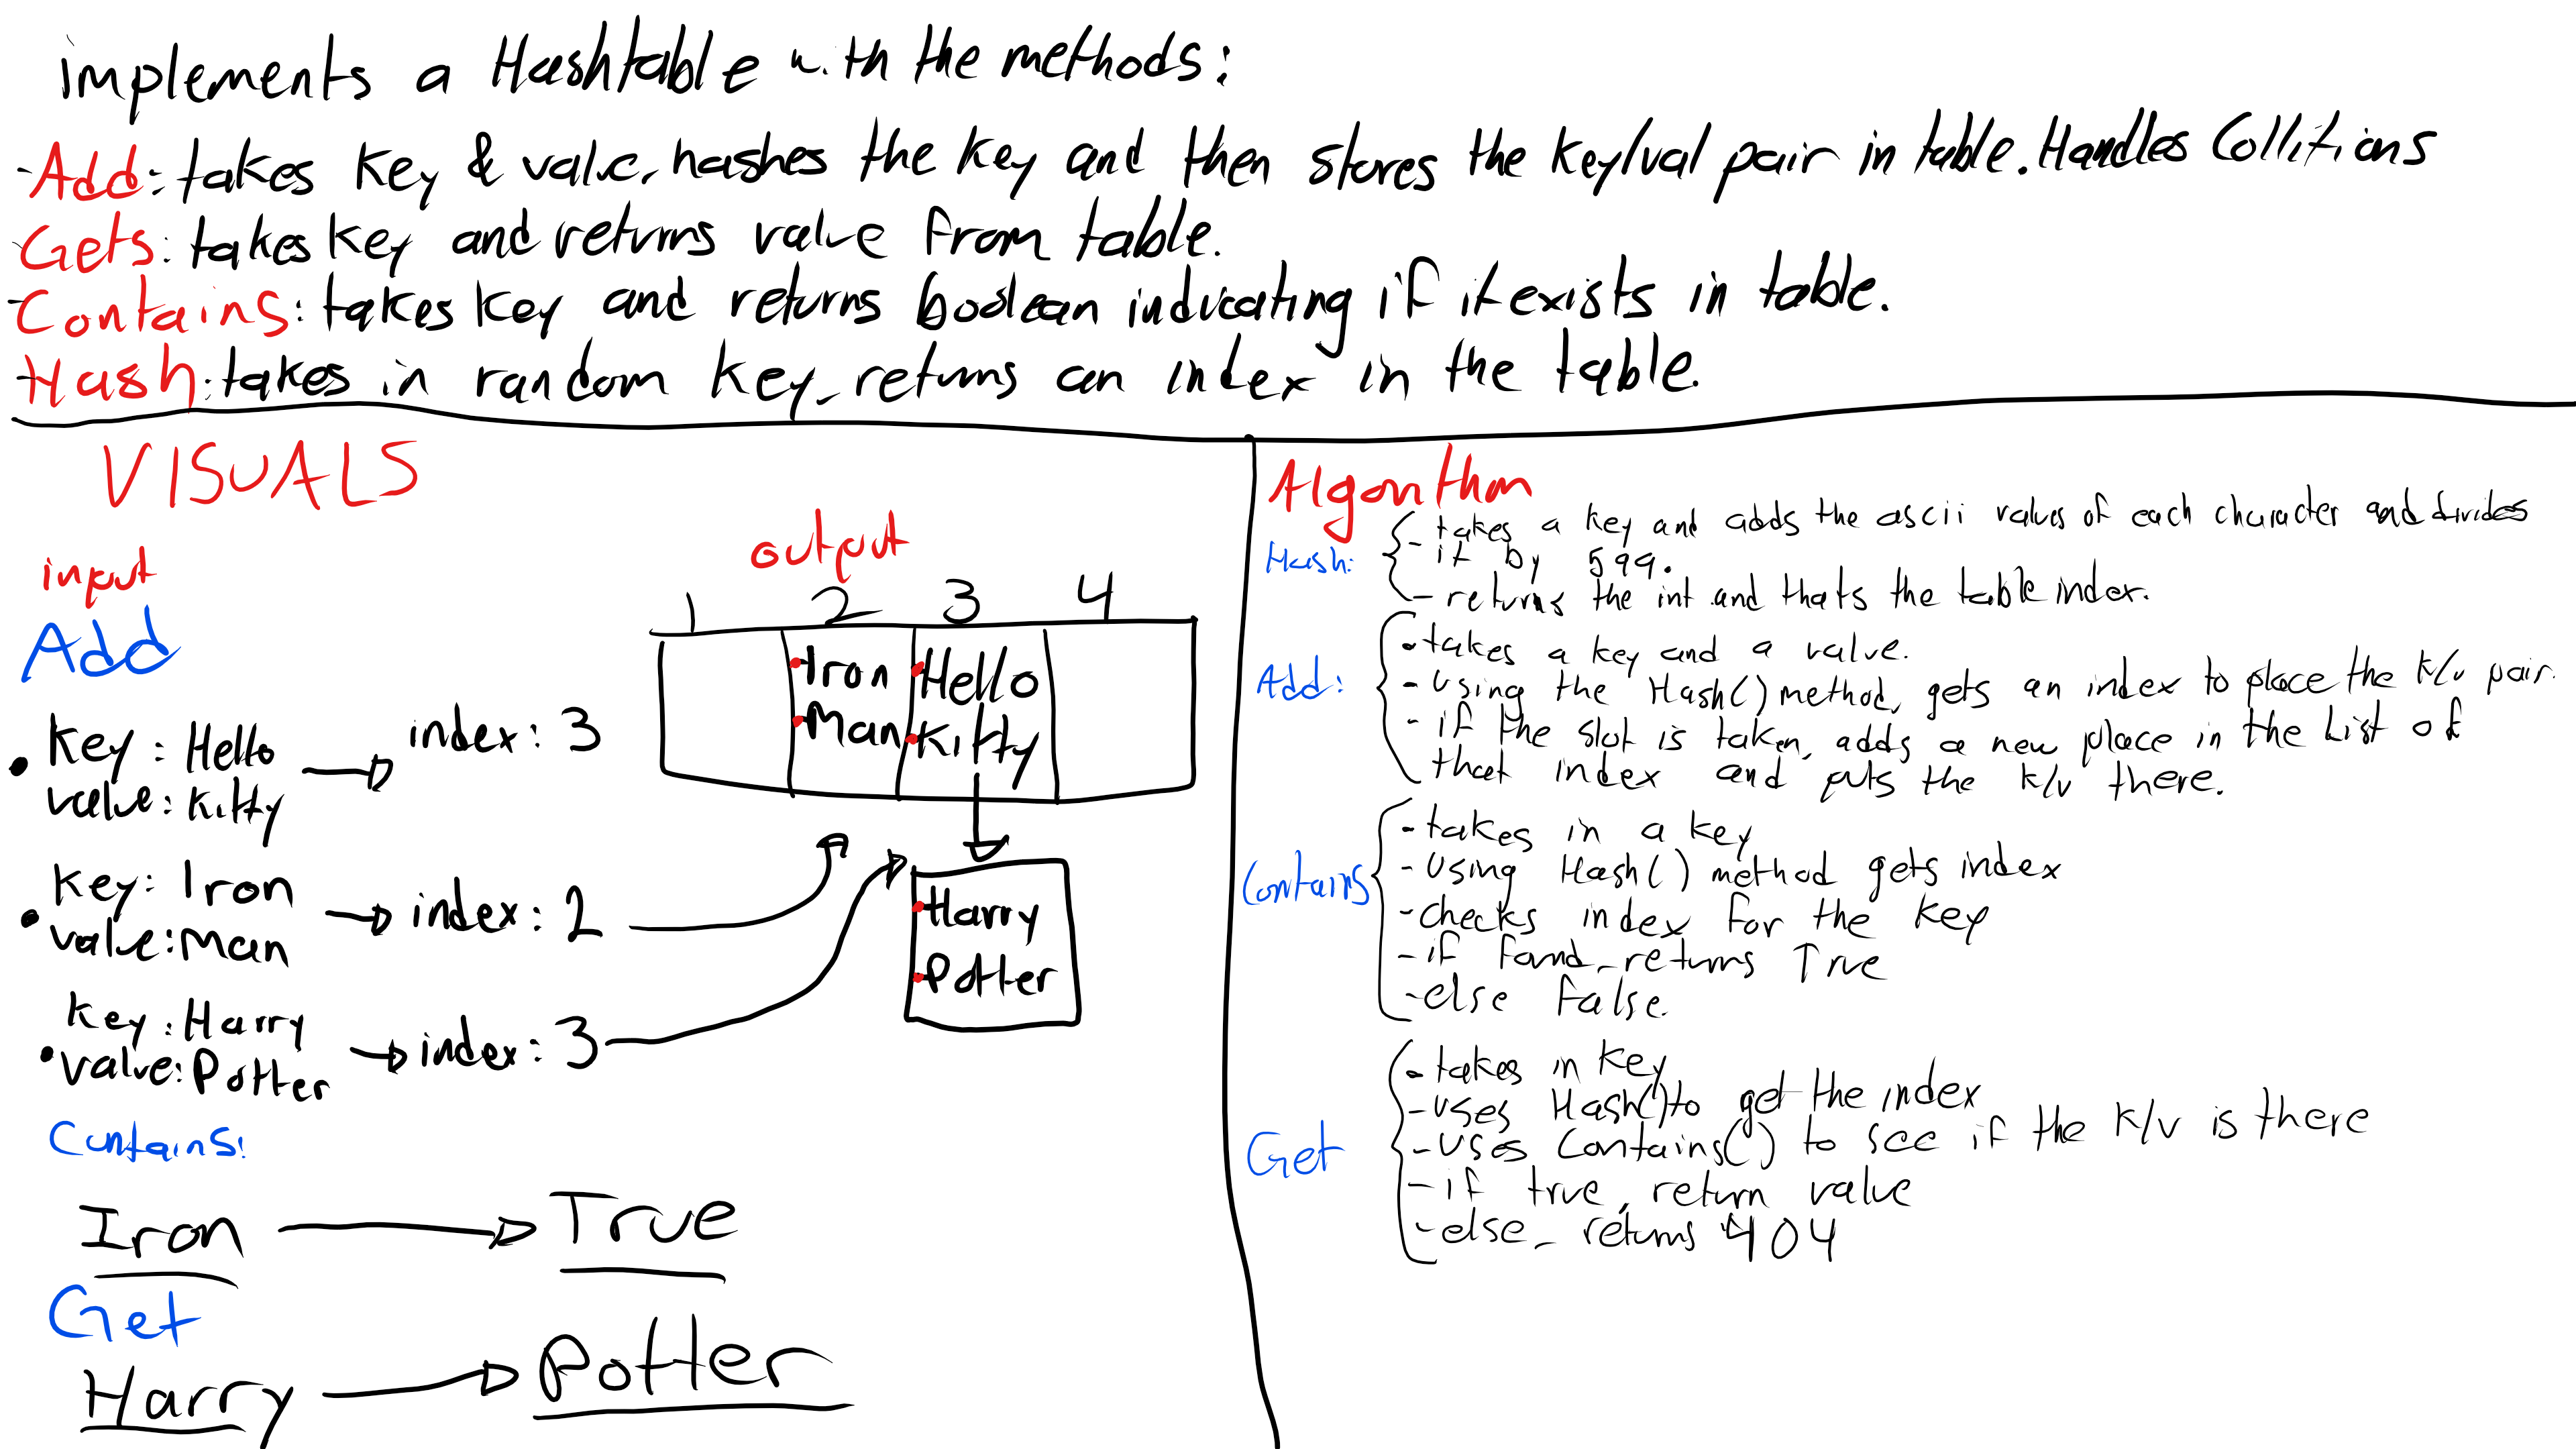 implements a Hashtable with the methods:
-Add: takes key & value, hashes the key and then stores the key/val pair in table. Handles Collitions
-Gets: takes key and returns value from table.
-Contains: takes key and returns boolean inducating if it exists in table.
-Hash: takes in random key, returns an index in the table.
VISUALS
input
output
Add
1 2 3 4
• key: Hello
value: Kitty
→ index: 3
• key: Iron
value: Man
→ index: 2
• key: Harry
value: Potter
→ index: 3
• Iron
• Man
• Hello
• Kitty
• Harry
• Potter
Contains:
Iron → True
Get
Harry → Potter
Algorithm
Hash:
- takes a key and adds the ascii values of each character and divides
it by 599.
- returns the int and thats the table index.
Add:
- takes a key and a value.
- using the Hash() method, gets an index to place the k/v pair.
- if the slot is taken, adds a new place in the List of
that index and puts the k/v there.
Contains
- takes in a key
- using Hash() method gets index
- checks index for the key
- if found, returns True
- else False.
Get
- takes in key
- uses Hash() to get the index
- uses Contains() to see if the k/v is there
- if true, return value
- else, returns 404